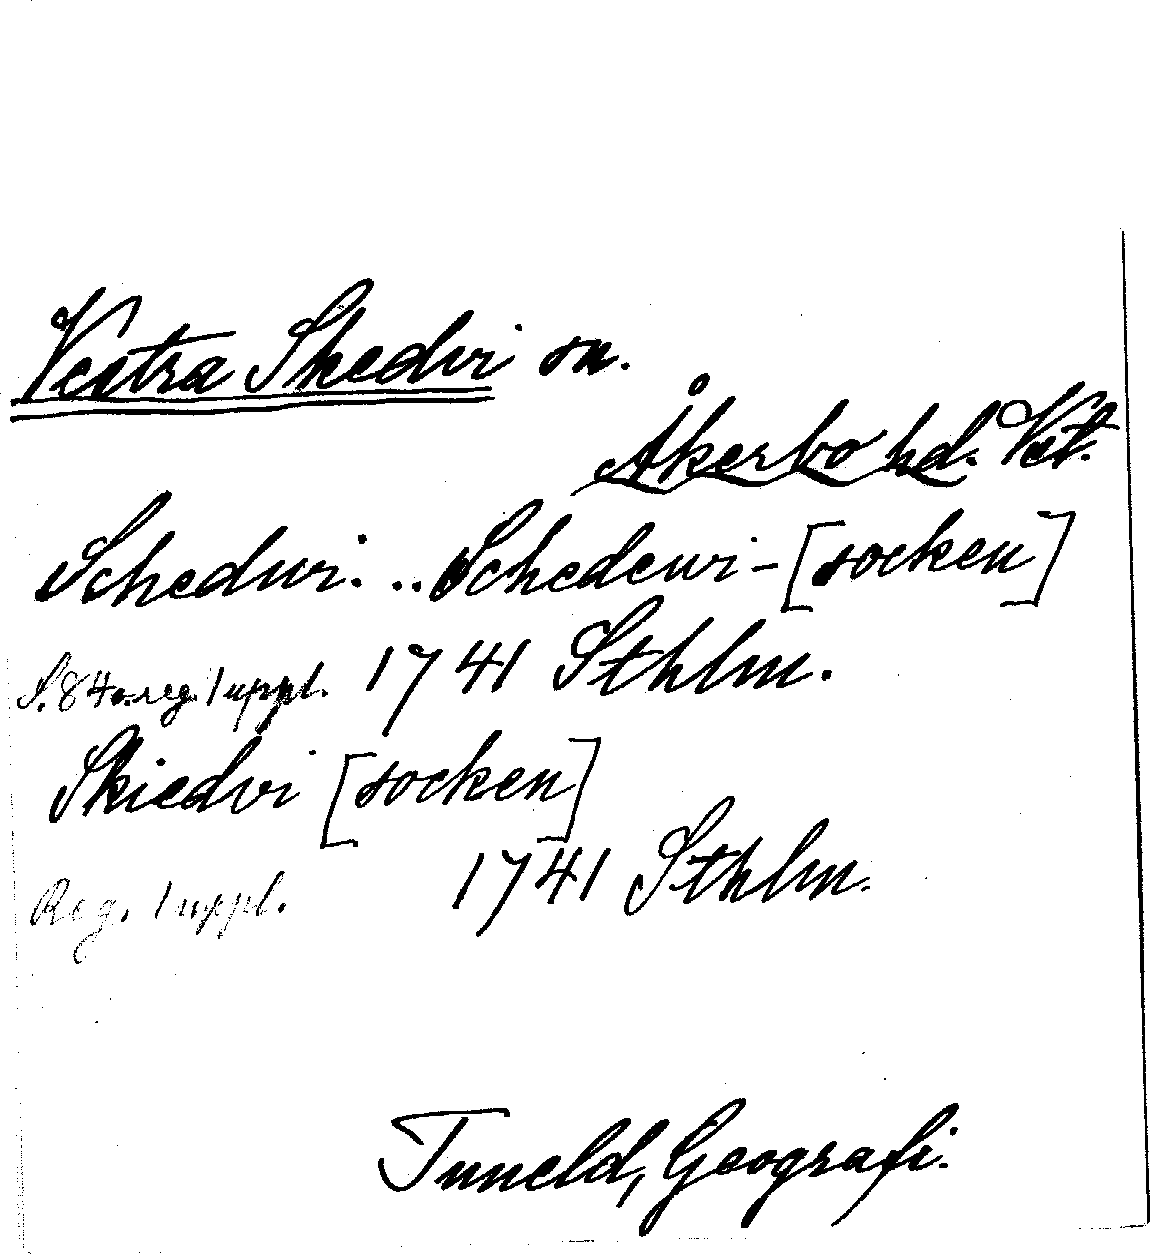 Vestra Skedvi sn.
Åkerbo hd. Vst.
Schedwi. .. Schedewi- [socken]
S. 84 o. reg. 1 uppl. 1741 Sthlm.
Skiedvi [socken]
Reg. 1 uppl. 1741 Sthlm.
Tuneld, Geografi.